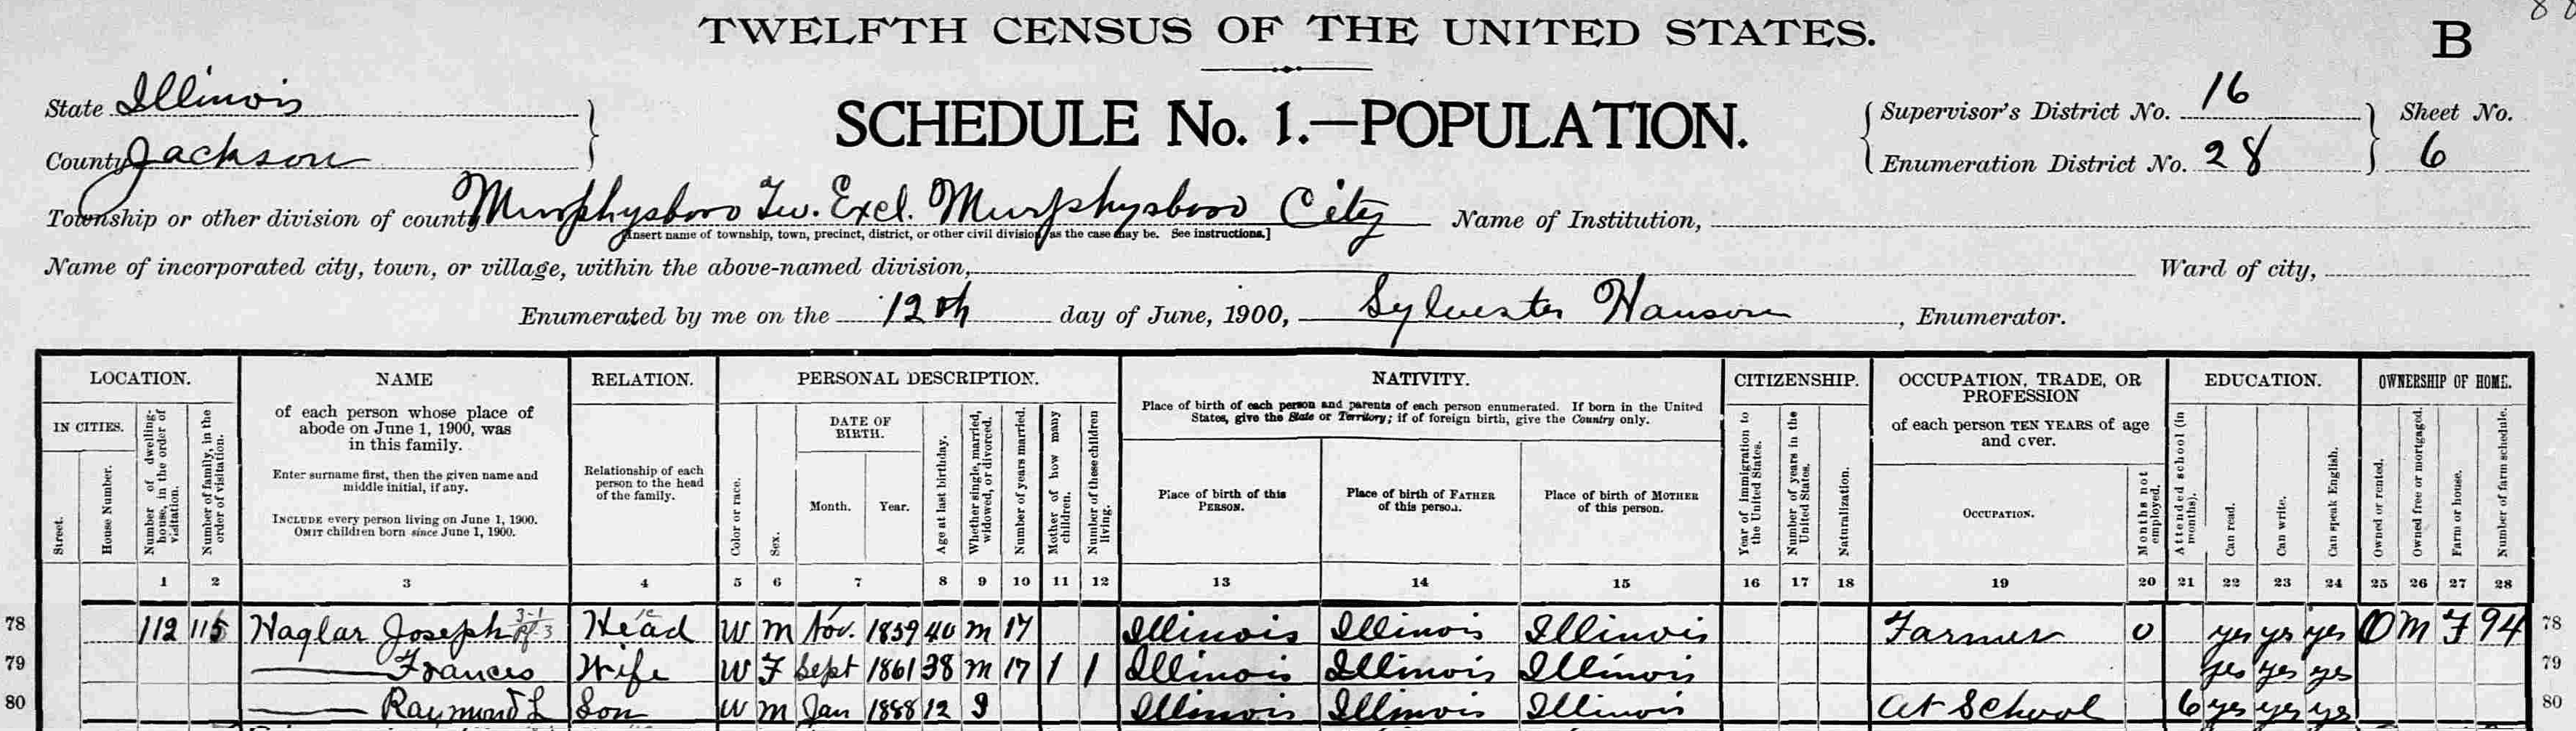 TWELFTH CENSUS OF THE UNITED STATES.
B
State Illinois
County Jackson
SCHEDULE No. 1.—POPULATION.
Supervisor's District No. 16
Enumeration District No. 28
Sheet No.
6
Township or other division of county Murphysboro Tw. Excl. Murphysboro City Name of Institution,
[Insert name of township, town, precinct, district, or other civil division, as the case may be. See instructions.]
Name of incorporated city, town, or village, within the above-named division, Ward of city,
Enumerated by me on the 12th day of June, 1900, Sylvester Hanson, Enumerator.
LOCATION.
IN CITIES.
Street.
House Number.
Number of dwelling-house, in the order of visitation.
Number of family, in the order of visitation.
NAME
of each person whose place of
abode on June 1, 1900, was
in this family.
Enter surname first, then the given name and
middle initial, if any.
INCLUDE every person living on June 1, 1900.
OMIT children born since June 1, 1900.
RELATION.
Relationship of each
person to the head
of the family.
PERSONAL DESCRIPTION.
Color or race.
Sex.
DATE OF
BIRTH.
Month.
Year.
Age at last birthday.
Whether single, married, widowed, or divorced.
Number of years married.
Mother of how many children.
Number of these children living.
NATIVITY.
Place of birth of each person and parents of each person enumerated. If born in the United
States, give the State or Territory; if of foreign birth, give the Country only.
Place of birth of this
PERSON.
Place of birth of FATHER
of this person.
Place of birth of MOTHER
of this person.
CITIZENSHIP.
Year of immigration to the United States.
Number of years in the United States.
Naturalization.
OCCUPATION, TRADE, OR
PROFESSION
of each person TEN YEARS of age
and over.
OCCUPATION.
Months not employed.
EDUCATION.
Attended school (in months).
Can read.
Can write.
Can speak English.
OWNERSHIP OF HOME.
Owned or rented.
Owned free or mortgaged.
Farm or house.
Number of farm schedule.
1 2 3 4 5 6 7 8 9 10 11 12 13 14 15 16 17 18 19 20 21 22 23 24 25 26 27 28
78 112 115 Haglar Joseph Head W M Nov. 1859 40 M 17 Illinois Illinois Illinois Farmer 0 yes yes yes O M F 94 78
79 — Frances Wife W F Sept 1861 38 M 17 1 1 Illinois Illinois Illinois yes yes yes 79
80 — Raymond L Son W M Jan 1888 12 S Illinois Illinois Illinois At School 6 yes yes yes 80